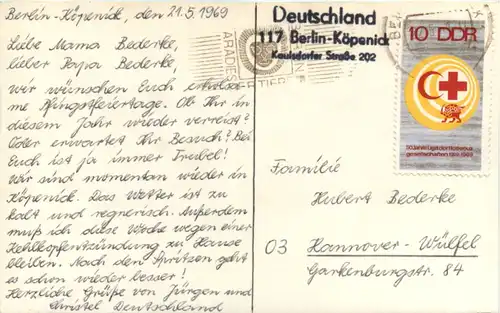 Berlin-Köpenick, den 21.5.1969
Liebe Mama Bederke,
lieber Papa Bederke,
wir wünschen Euch erholsa-
me Pfingstfeiertage. Ob Ihr in
diesem Jahr wieder verreist?
Oder erwartet Ihr Besuch? Bei
Euch ist ja immer Trubel!
Wir sind momentan wieder in
Köpenick. Das Wetter ist zu
kalt und regnerisch. Außerdem
muß ich diese Woche wegen einer
Kehlkopfentzündung zu Hause
bleiben. Nach den Spritzen geht
es schon wieder besser!
Herzliche Grüße von Jürgen und
Christel Deutschland
Deutschland
117 Berlin-Köpenick
Kaulsdorfer Straße 202
10 DDR
50 Jahre Liga der Rotkreuz-
gesellschaften 1919-1969
Familie
Hubert Bederke
03 Hannover-Wülfel
Garkenburgstr. 84